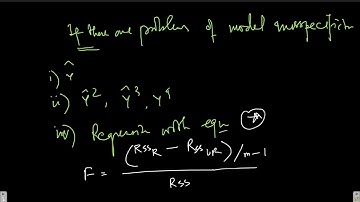 If there are problem of model misspecificatn
i) Ŷ
ii) Ŷ², Ŷ³, Y⁴
iii) Regression with eqn
F = (RSS_R − RSS_UR) / m − 1
RSS